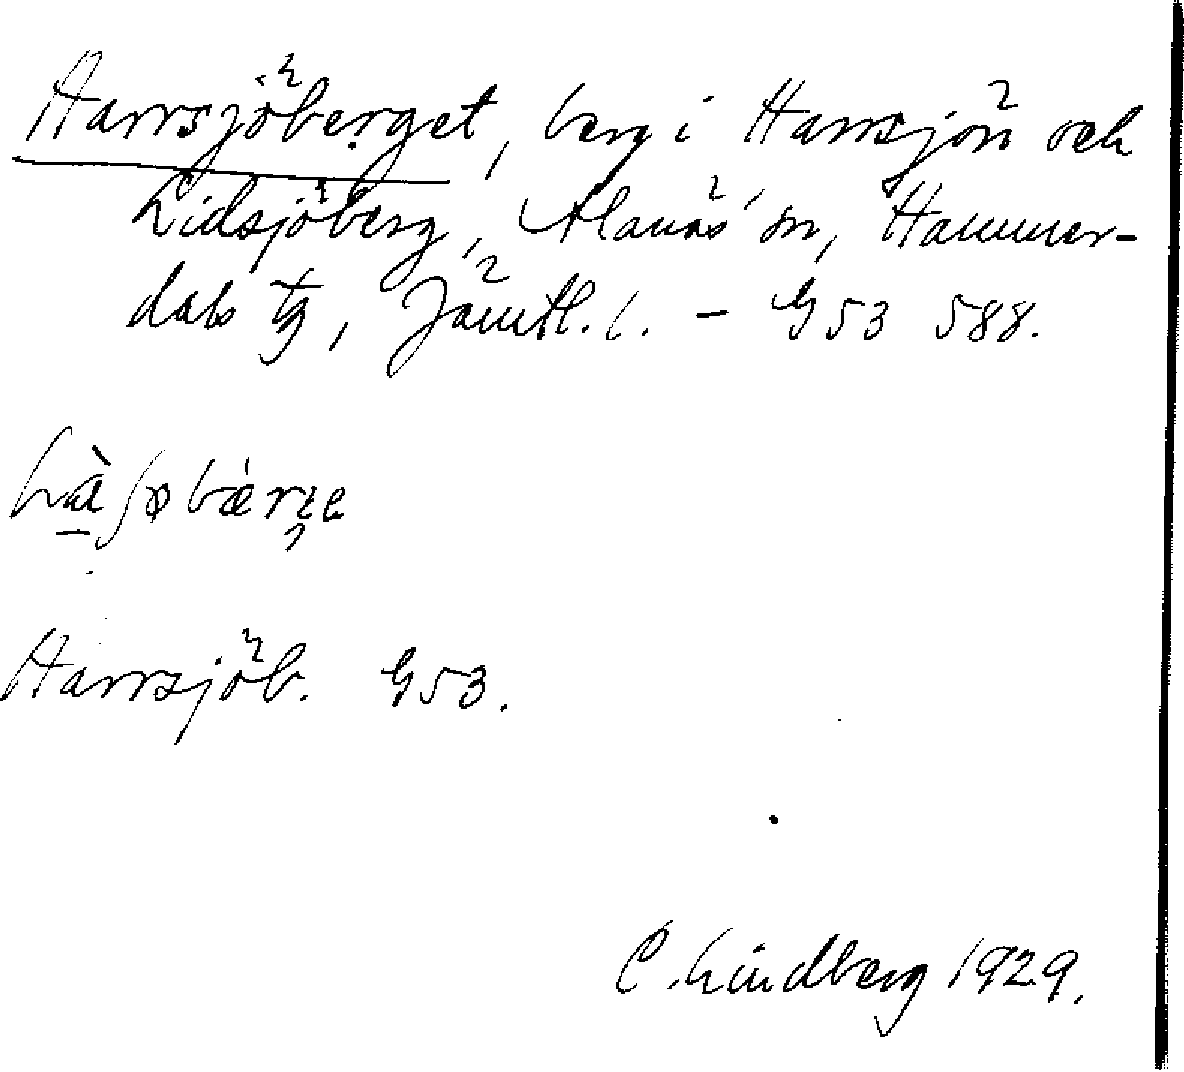 Harrsjöberget, berg i Harrsjön och
Lidsjöberg, Alanäs sn, Hammer-
dals tg, Jämtl. l. – G53 588.
Harrsjöb. G53.
C. Lindberg 1929.